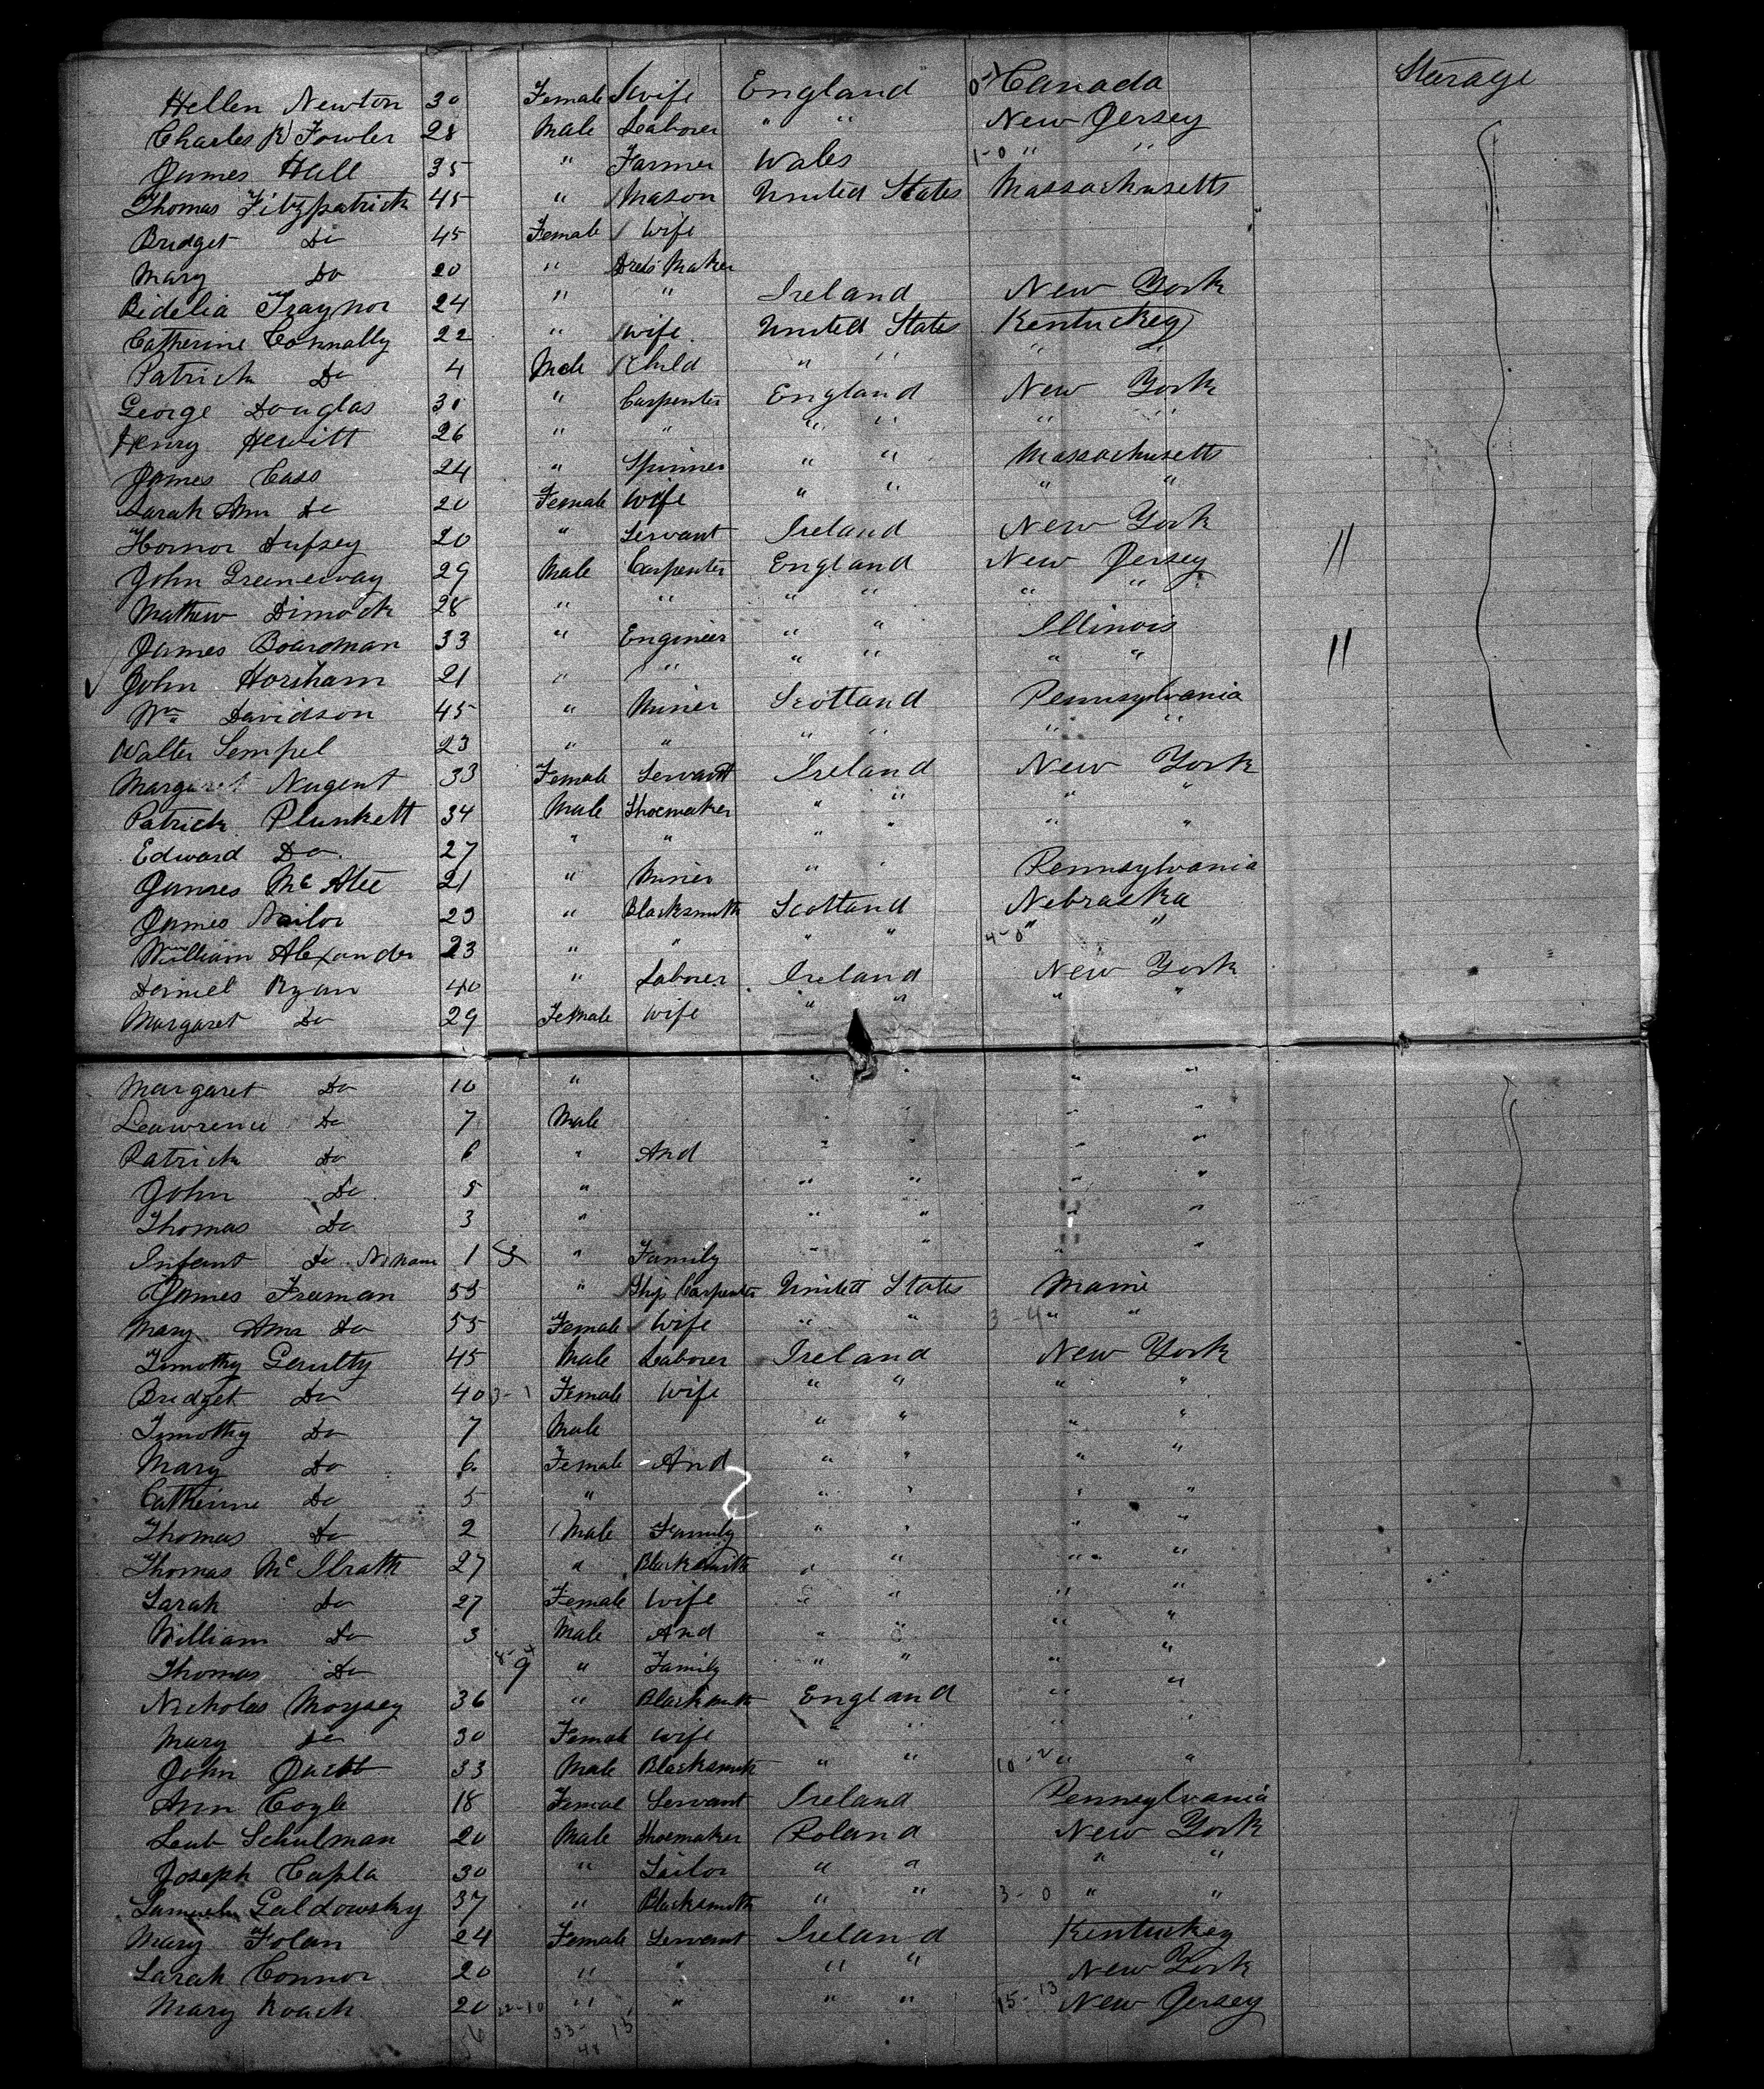 Hellen Newton 30 Female Wife England 0-1 Canada Sterage
Charles R Fowler 28 Male Laborer " " New Jersey
James Hall 35 " Farmer Wales 1-0 " "
Thomas Fitzpatrick 45 " Mason United States Massachusetts
Bridget Do 45 Female Wife
Mary Do 20 " Dress Maker
Bidelia Traynor 24 " " Ireland New York
Catherine Connally 22 " Wife United States Kentuckey
Patrick Do 4 Male Child " " " "
George Douglas 30 " Carpenter England New York
Henry Hewitt 26 " " " " " "
James Cass 24 " Spinner " " Massachusetts
Sarah Ann Do 20 Female Wife " " " "
Honor Dufsey 20 " Servant Ireland New York
John Greeneway 29 Male Carpenter England New Jersey
Mathew Dimock 28 " " " " " "
James Boardman 33 " Engineer " " Illinois
John Horsham 21 " " " " " "
Wm Davidson 45 " Miner Scotland Pennsylvania
Walter Sempel 23 " " " " " "
Margaret Nugent 33 Female Servant Ireland New York
Patrick Plunkett 34 Male Shoemaker " " " "
Edward Do 27 " " " " " "
James Mc Atee 21 " Miner " " Pennsylvania
James Nailor 23 " Blacksmith Scotland Nebraska
William Alexander 23 " " " " 4-0 " "
Daniel Ryan 40 " Laborer Ireland New York
Margaret Do 29 Female Wife " " " "
Margaret Do 10 " " " " "
Leawrence Do 7 Male " " " "
Patrick Do 6 " And " " " "
John Do 5 " " " " "
Thomas Do 3 " " " " "
Infant Do No Name 1 " Family " " " "
James Freeman 55 " Ship Carpenter United States Maine
Mary Ann Do 55 Female Wife " " 3-4 " "
Timothy Gerulty 45 Male Laborer Ireland New York
Bridget Do 40 3-1 Female Wife " " " "
Timothy Do 7 Male " " " "
Mary Do 6 Female And " " " "
Catherine Do 5 " " " " "
Thomas Do 2 Male Family " " " "
Thomas Mc Ilrath 27 " Blacksmith " " " "
Sarah Do 27 Female Wife " " " "
William Do 3 Male And " " " "
Thomas Do 9 " Family " " " "
Nicholas Moysey 36 " Blacksmith England " "
Mary Do 30 Female Wife " " " "
John 33 Male Blacksmith " " " "
Ann Coyle 18 Female Servant Ireland Pennsylvania
Leub Schulman 20 Male Shoemaker Poland New York
Joseph Capla 30 " Tailor " " " "
Samuel Galdowsky 37 " Blacksmith " " 3-0 " "
Mary Folan 24 Female Servant Ireland Kentuckey
Sarah Connor 20 " " " " New York
Mary Roach 20 " " " " 15-13 New Jersey